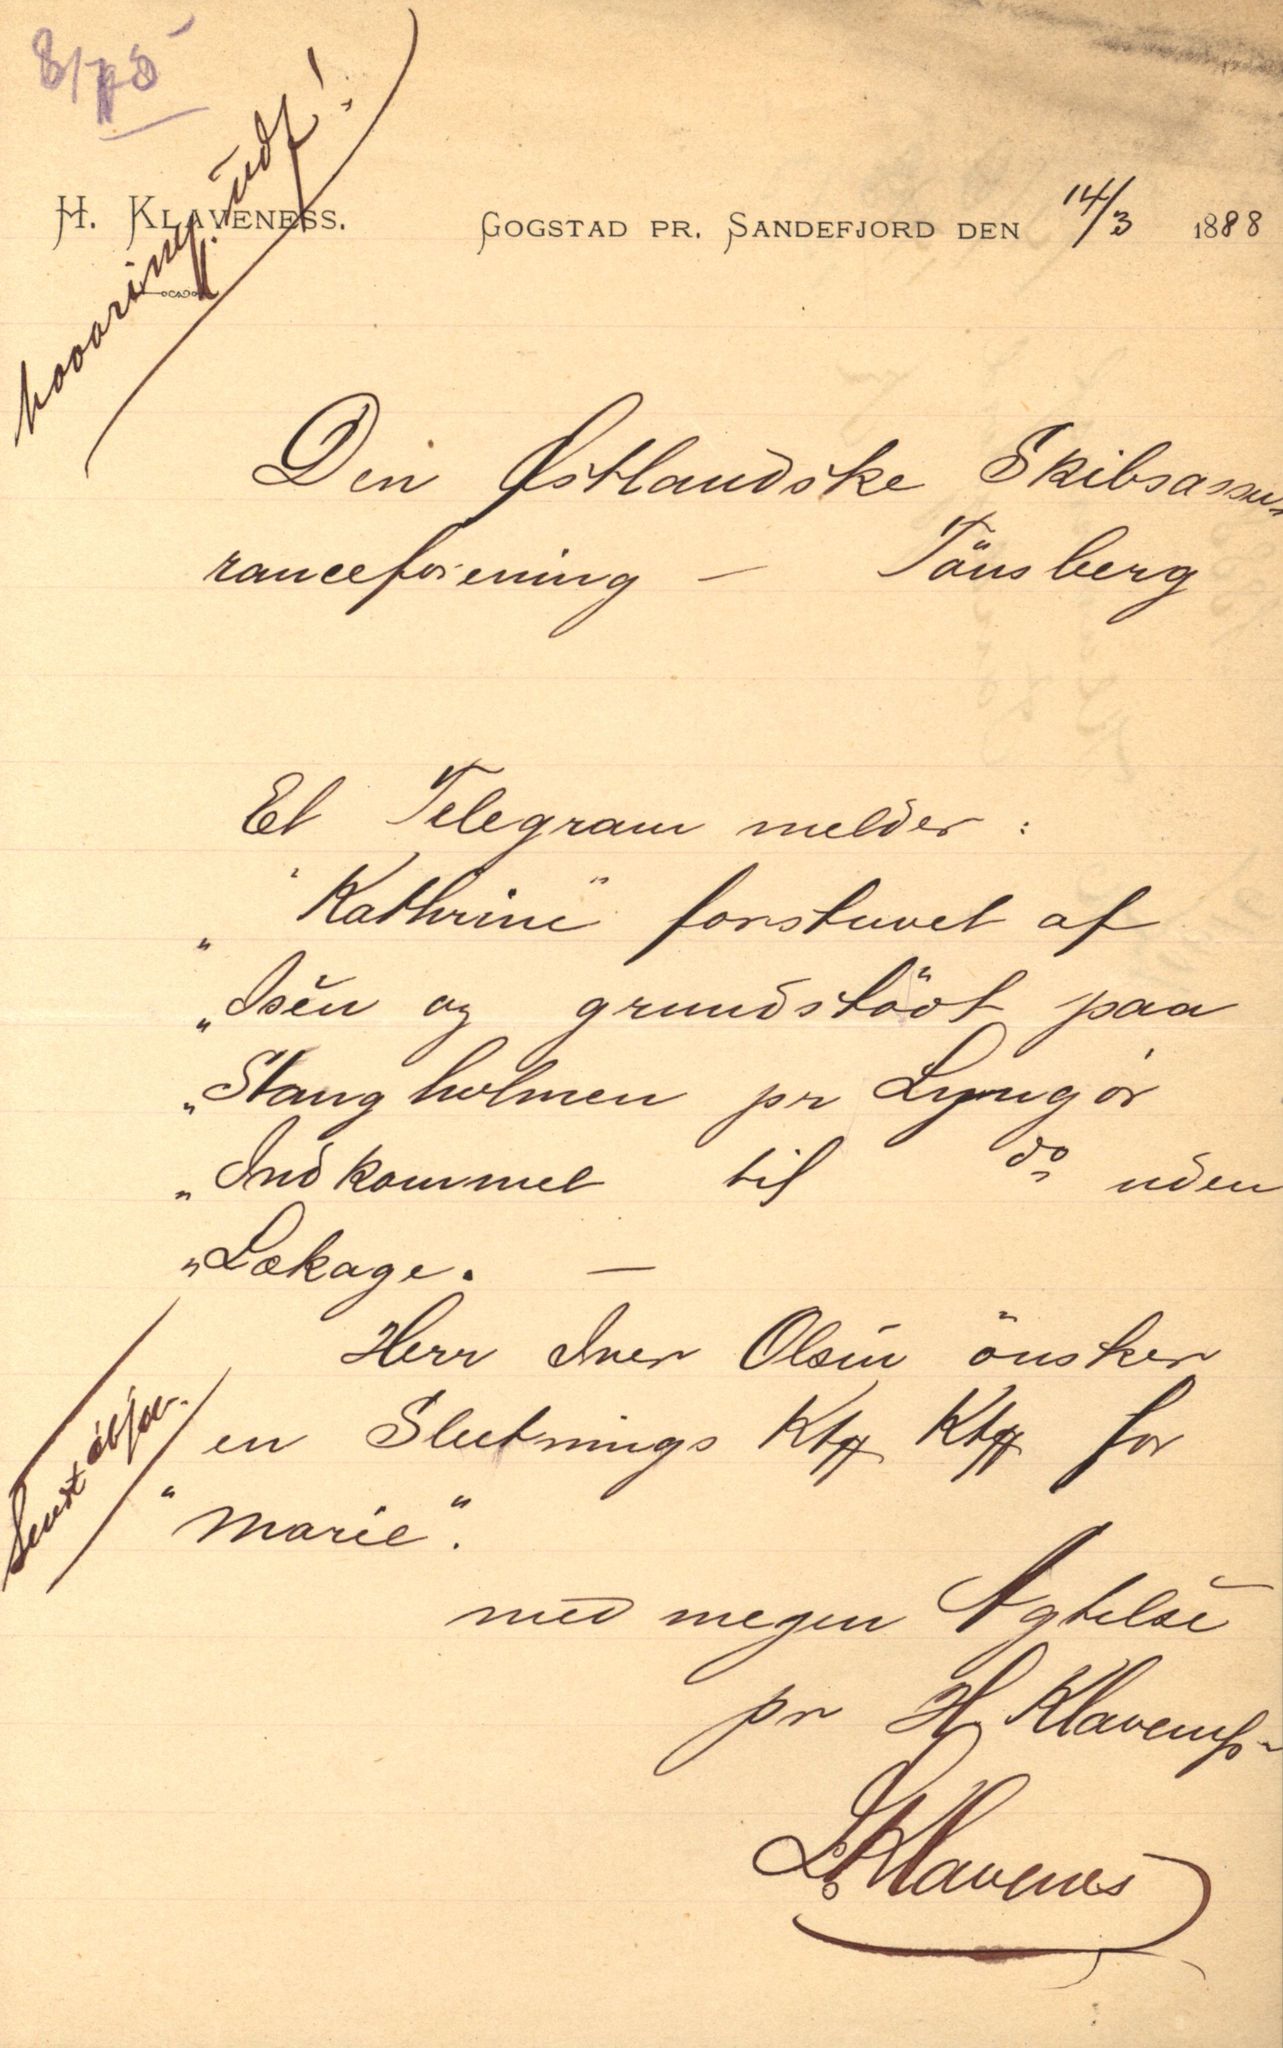 8/75
H. Klaveness. Gogstad pr. Sandefjord den 14/3 1888
Den Østlandske Skibsassu-
ranceforening — Tönsberg
Et Telegram melder :
"Kathrine" forskuvet af
"Isen og grundstödt paa
"Stangholmen pr Lyngör
"Indkommet til do uden
"Lækage. —
Herr Iver Olsen önsker
en Slutnings
for
"Marie".
Sendt
med megen Agtelse
pr H. Klaveness
Klavenes